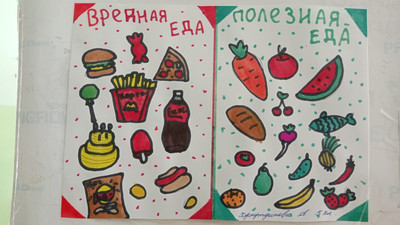 ВРЕДНАЯ
ЕДА
ПОЛЕЗНАЯ
ЕДА